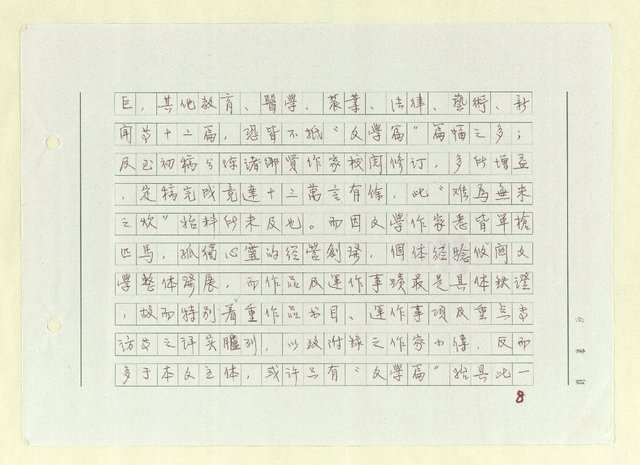 巨，其他教育、醫學、農業、法律、藝術、新
聞等十二篇，恐皆不抵“文學篇”篇幅之多；
及包初稿分陳諸鄉賢作家校閱修訂，多所增益
，定稿完成竟達十二萬言有餘，此“難為無米
之炊”始料所未及也。而因文學作家悉皆單槍
匹馬，孤獨心靈的經營創發，個体經驗攸關文
學整体發展，而作品及運作事蹟最是具体執證
，故而特別着重作品書目、運作事項及重点
訪等之詳實臚列，以致附錄之作家小傳，反而
多于本文主体，或許只有“文學篇”始具此一
8